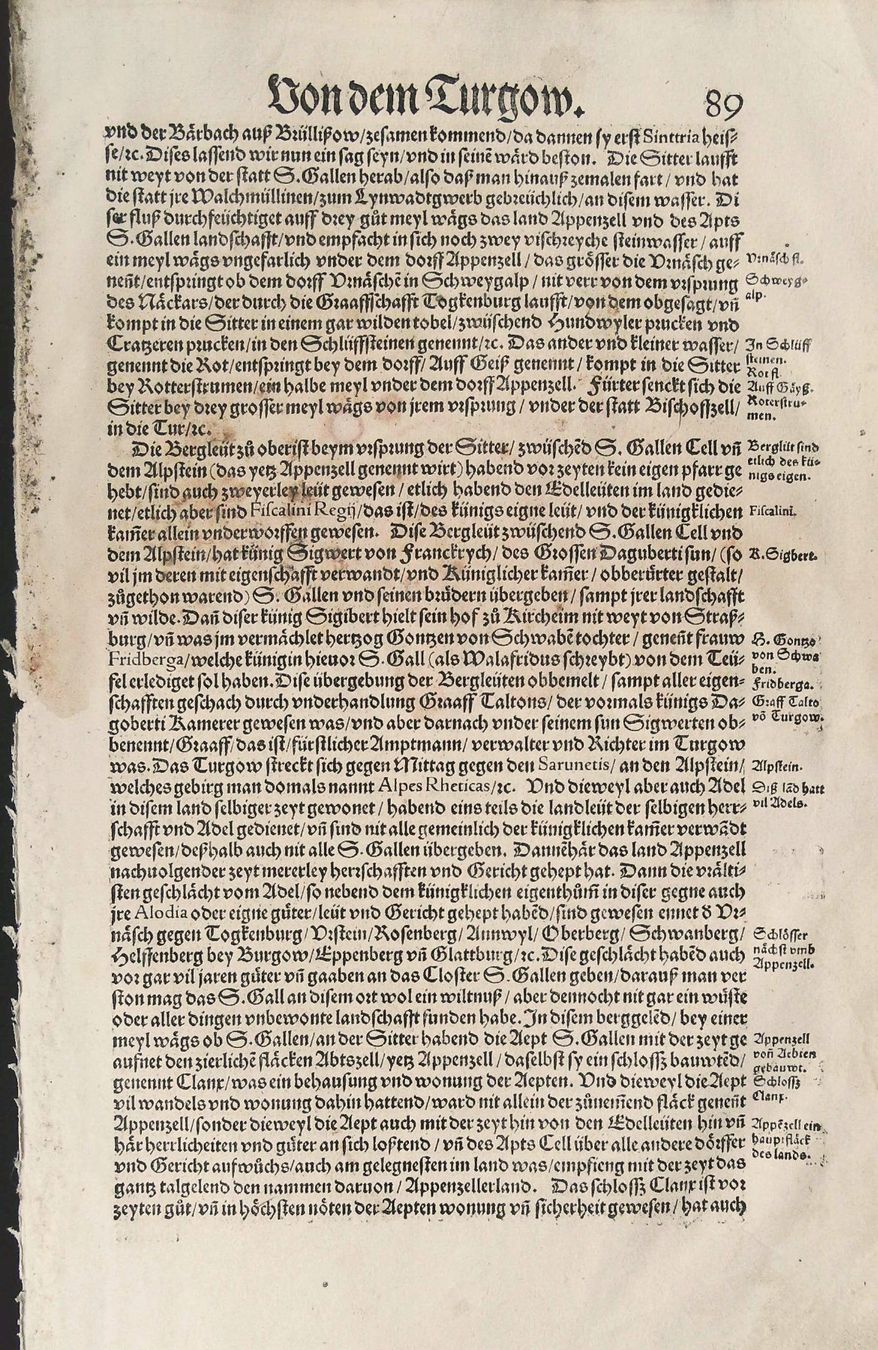 Von dem Turgow. 89
vnd der Bärbach auß Brüllißow/zesamen kommend/da dannen sy erst Sinttria heis⸗
se/ꝛc. Dises lassend wir nun ein sag seyn/vnd in seinē wärd beston. Die Sitter laufft
nit weyt von der statt S. Gallen herab/also daß man hinauß zemalen fart/ vnd hat
die statt jre Walchmüllinen/zum Lynwadtgwerb gebreüchlich/an disem wasser. Di
ser fluß durchfeüchtiget auff drey gůt meyl wägs das land Appenzell vnd des Apts
S. Gallen landschafft/vnd empfacht in sich noch zwey vischreyche steinwasser/ auff
ein meyl wägs vngefarlich vnder dem dorff Appenzell/ das grösser die Vrnäsch ge⸗
neñt/entspringt ob dem dorff Vrnäschē in Schweygalp/ nit verr von dem vrsprung
des Näckars/der durch die Graaffschafft Togkenburg laufft/von dem obgesagt/vñ
kompt in die Sitter in einem gar wilden tobel/zwüschend Hundwyler prucken vnd
Cratzeren prucken/in den Schlüffsteinen genennt/ꝛc. Das ander vnd kleiner wasser/
genennt die Rot/entspringt bey dem dorff/ Auff Geiß genennt/ kompt in die Sitter
bey Rotterstrumen/ein halbe meyl vnder dem dorff Appenzell. Fürter senckt sich die
Sitter bey drey grosser meyl wägs von jrem vrsprung/ vnder der statt Bischoffzell/
in die Tur/ꝛc.
Die Bergleüt zů oberist beym vrsprung der Sitter/ zwüschēd S. Gallen Cell vñ
dem Alpstein (das yetz Appenzell genennt wirt) habend vor zeyten kein eigen pfarr ge
hebt/sind auch zweyerley leüt gewesen/ etlich habend den Edelleüten im land gedie⸗
net/etlich aber sind Fiscalini Regij/das ist/des künigs eigne leüt/ vnd der künigklichen
kam̄er allein vnderworffen gewesen. Dise Bergleüt zwüschend S. Gallen Cell vnd
dem Alpstein/hat künig Sigwert von Franckrych/ des Grossen Daguberti sun/ (so
vil jm deren mit eigenschafft verwandt/vnd Küniglicher kam̄er/ obberürter gestalt/
zůgethon warend) S. Gallen vnd seinen brüdern übergeben/ sampt jrer landschafft
vñ wilde. Dañ diser künig Sigibert hielt sein hof zů Kircheim nit weyt von Straß⸗
burg/vñ was jm vermächlet hertzog Gontzen von Schwabē tochter/ geneñt frauw
Fridberga/welche künigin hieuor S. Gall (als Walafridus schreybt) von dem Teü⸗
fel erlediget sol haben. Dise übergebung der Bergleüten obbemelt/ sampt aller eigen⸗
schafften geschach durch vnderhandlung Graaff Taltons/ der vormals künigs Da⸗
goberti Kamerer gewesen was/vnd aber darnach vnder seinem sun Sigwerten ob⸗
benennt/Graaff/das ist/fürstlicher Amptmann/ verwalter vnd Richter im Turgow
was. Das Turgow streckt sich gegen Mittag gegen den Sarunetis/ an den Alpstein/
welches gebirg man domals nannt Alpes Rheticas/ꝛc. Vnd dieweyl aber auch Adel
in disem land selbiger zeyt gewonet/ habend eins teils die landleüt der selbigen herr⸗
schafft vnd Adel gedienet/vñ sind nit alle gemeinlich der künigklichen kam̄er verwādt
gewesen/deßhalb auch nit alle S. Gallen übergeben. Dannēhär das land Appenzell
nachuolgender zeyt mererley herrschafften vnd Gericht gehept hat. Dann die vrälti⸗
sten geschlächt vom Adel/so nebend dem künigklichen eigenthům̄ in diser gegne auch
jre Alodia oder eigne güter/leüt vnd Gericht gehept habēd/sind gewesen ennet ð Vr⸗
näsch gegen Togkenburg/Vrstein/Rosenberg/Annwyl/Oberberg/Schwanberg/
Helffenberg bey Burgow/Eppenberg vñ Glattburg/ꝛc. Dise geschlächt habēd auch
vor gar vil jaren güter vñ gaaben an das Closter S. Gallen geben/darauß man ver
ston mag das S. Gall an disem ort wol ein wiltnuß/ aber dennocht nit gar ein wüste
oder aller dingen vnbewonte landschafft funden habe. In disem berggelēd/ bey einer
meyl wägs ob S. Gallen/an der Sitter habend die Aept S. Gallen mit der zeyt ge
aufnet den zierlichē fläcken Abtszell/yetz Appenzell/ daselbst sy ein schlossz bauwtēd/
genennt Clanx/was ein behausung vnd wonung der Aepten. Vnd dieweyl die Aept
vil wandels vnd wonung dahin hattend/ward nit allein der zůnem̄end fläck geneñt
Appenzell/sonder dieweyl die Aept auch mit der zeyt hin von den Edelleüten hin vñ
här herrlicheiten vnd güter an sich loßtend/ vñ des Apts Cell über alle andere dörffer
vnd Gericht aufwůchs/auch am gelegnesten im land was/empfieng mit der zeyt das
gantz talgelend den nammen daruon/ Appenzellerland. Das schlossz Clanx ist vor
zeyten gůt/vñ in höchsten nöten der Aepten wonung vñ sicherheit gewesen/ hat auch
Vrnäsch fl.
Schweyg⸗
alp.
In Schlüff
steinen.
Rot fl.
Auff Gäyß.
Roterstru⸗
men.
Berglüt sind
etlich des kü⸗
nigs eigen.
Fiscalini.
K. Sigbert.
H. Gontzo
von Schwa
ben.
Fridberga.
Graff Talto
vō Turgow.
Alpstein.
Diß lād hatt
vil Adels.
Schlösser
nächst vmb
Appenzell.
Appenzell
von Aebten
gebauwt.
Schlossz
Clanx.
Appēzell ein
haupt fläck
des lands.